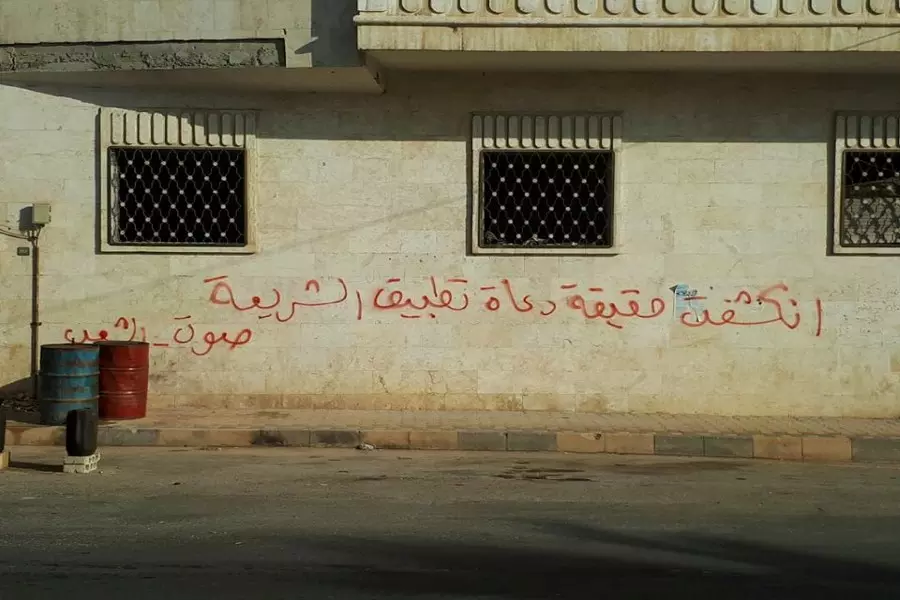 انكشفت حقيقة دعاة تطبيق الشريعة
صوت_الشعب